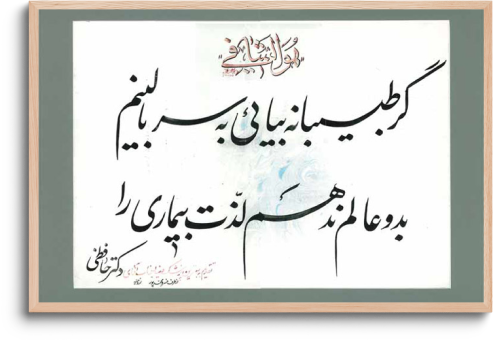 هوالشافی
گر طبیبانه بیائی به سر بالینم
بدو عالم ندهم لذت بیماری را
دکتر حافظی